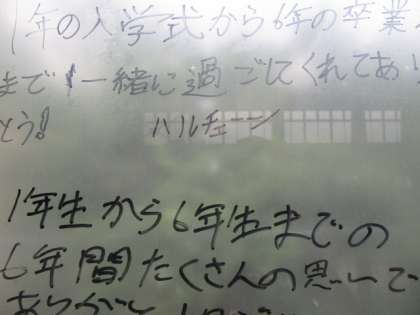 1年の入学式から6年の卒業
まで一緒に過ごしてくれてあり
とう!
ハルチェーン
1年生から6年生までの
6年間たくさんの思いで
ありがと